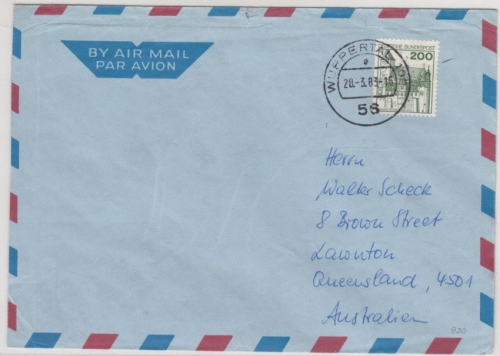 BY AIR MAIL
PAR AVION
WUPPERTAL
28.-3.83-15
56
DEUTSCHE BUNDESPOST
200
Herrn
Walter Scheck
8 Brown Street
Lawnton
Queensland, 4501
Australien